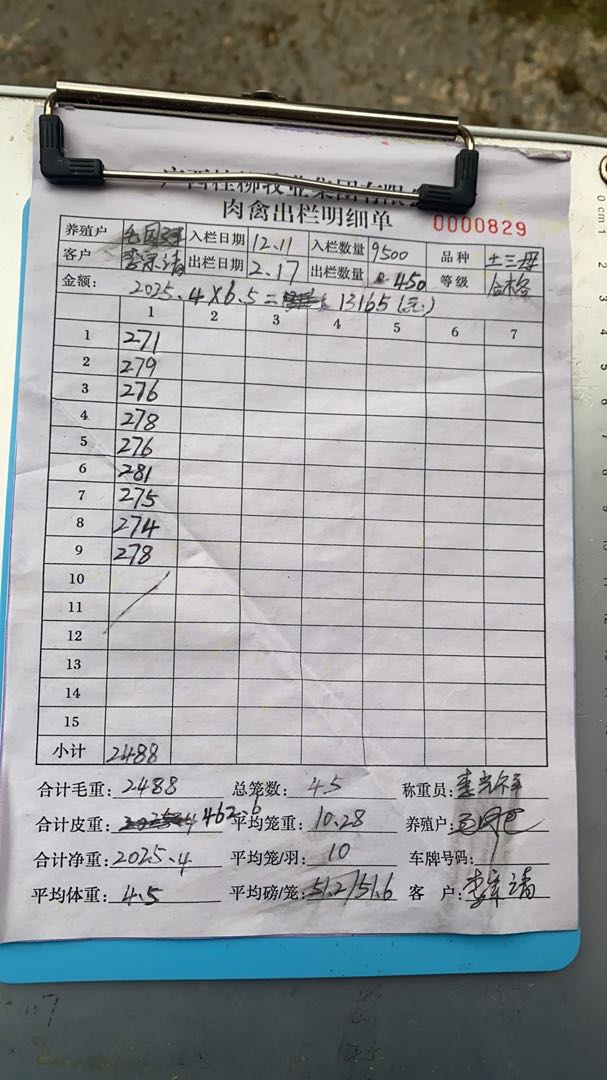 广西桂柳牧业集团有限公
肉禽出栏明细单 0000829
养殖户 入栏日期 12.11 入栏数量 9500 品种 土三母
客户 出栏日期 2.17 出栏数量 450 等级 合格
金额: 2025.4×6.5= 13165(元)
1 2 3 4 5 6 7
1 271
2 279
3 276
4 278
5 276
6 281
7 275
8 274
9 278
10
11
12
13
14
15
小计 2488
合计毛重: 2488 总笼数: 45 称重员:
合计皮重: 462.6 平均笼重: 10.28 养殖户:
合计净重: 2025.4 平均笼/羽: 10 车牌号码:
平均体重: 4.5 平均磅/笼: 51.2/51.6 客 户:
0 cm 1 2 3 4 5